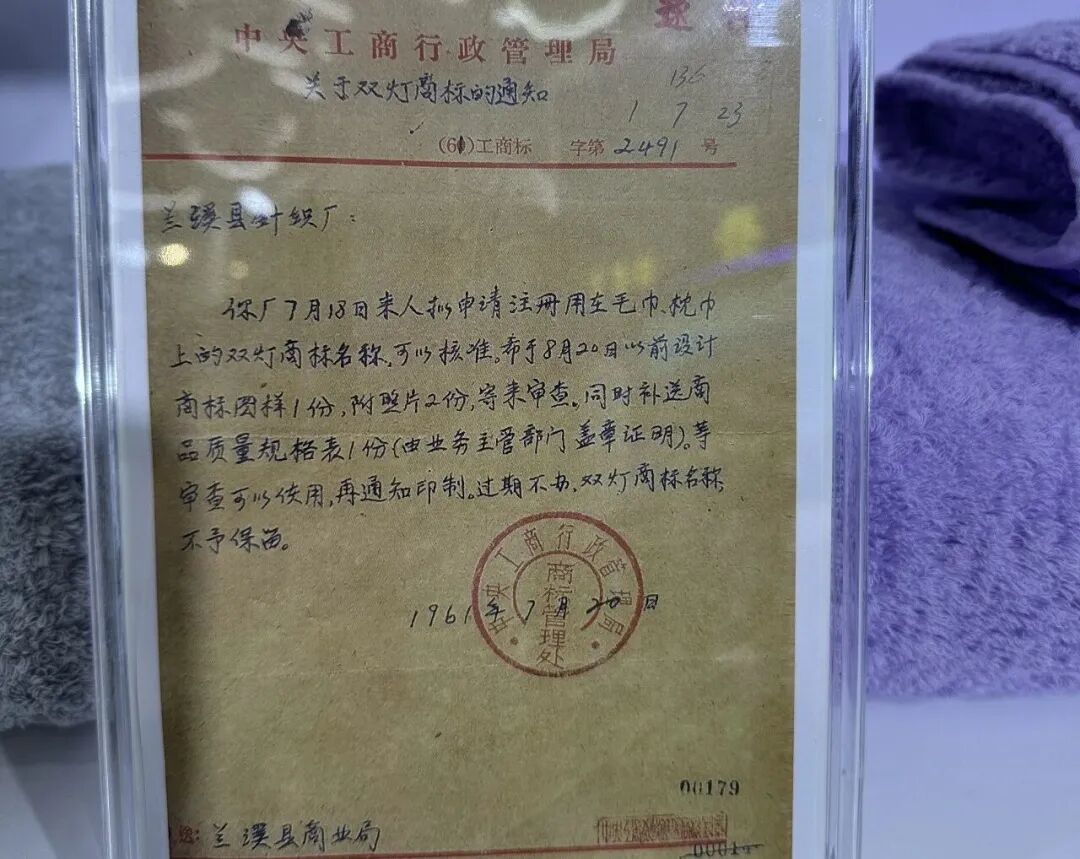 中央工商行政管理局
关于双灯商标的通知
136
1 7 23
(61)工商标 字第2491号
兰溪县针织厂：
你厂7月18日来人拟申请注册用在毛巾、枕巾
上的双灯商标名称，可以核准。希于8月20日以前设计
商标图样1份，附照片2份，寄来审查。同时补送商
品质量规格表1份（由业务主管部门盖章证明）。等
审查可以使用，再通知印制。过期不办，双灯商标名称，
不予保留。
中央工商行政管理局
商标管理处
1961年7月20日
00179
送：兰溪县商业局